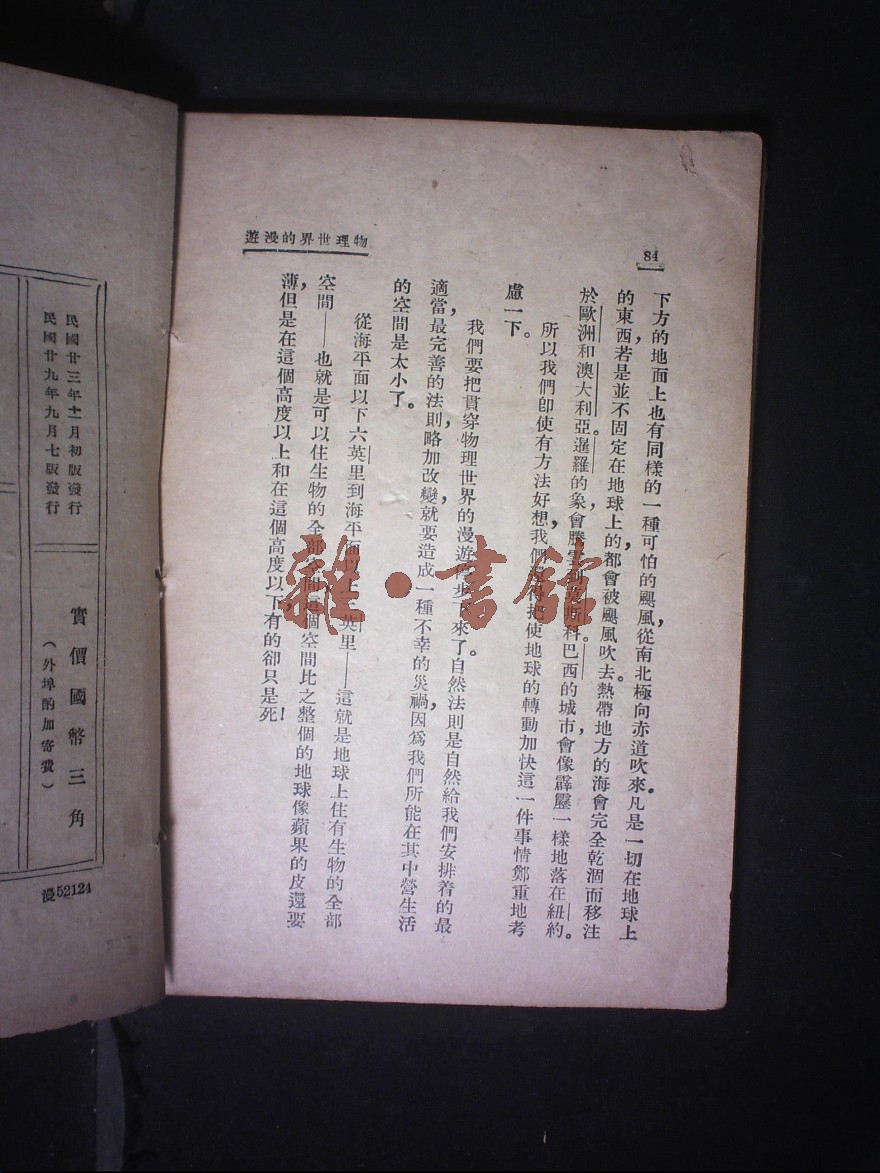 84
物理世界的漫遊
下方的地面上也有同樣的一種可怕的颶風，從南北極向赤道吹來。凡是一切在地球上
的東西，若是並不固定在地球上的，都會被颶風吹去。熱帶地方的海會完全乾涸而移注
於歐洲和澳大利亞。暹羅的象，會騰雲到莫斯科。巴西的城市，會像霹靂一樣地落在紐約。
所以我們卽使有方法好想，我們得把使地球的轉動加快這一件事情鄭重地考
慮一下。
我們要把貫穿物理世界的漫遊停步下來了。自然法則是自然給我們安排着的最
適當，最完善的法則，略加改變，就要造成一種不幸的災禍，因爲我們所能在其中營生活
的空間是太小了。
從海平面以下六英里到海平面以上英里——這就是地球上住有生物的全部
空間——也就是可以住生物的全部空間，這個空間比之整個的地球像蘋果的皮還要
薄，但是在這個高度以上和在這個高度以下，有的卻只是死！
雜·書館
民國廿三年十一月初版發行
民國廿九年九月七版發行
實價國幣三角
（外埠酌加寄費）
漫52124